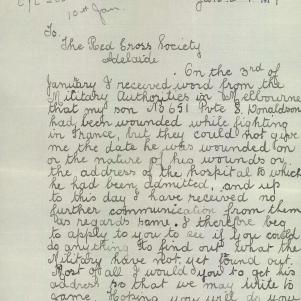 10th Jan.
To
The Red Cross Society
Adelaide
On the 3rd of
January I received word from the
Military Authorities in Melbourne
that my son No 691 Pvte S. Donaldson
had been wounded while fighting
in France, but they could not give
me the date he was wounded on
or the nature of his wounds or
the address of the hospital to which
he had been admitted, and up
to this day I have received no
further communication from them
as regards same, I therefore beg
to apply to you to see if you could
do anything to find out what the
Military have not yet found out.
Most of all I would you to get his
address so that we may write to
same. Hoping you will do you